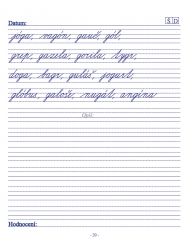 Datum:
Š D
jóga, vagón, gauč, gól,
grep, gazela, gorila, tygr,
doga, bagr, guláš, jogurt,
glóbus, galoše, nugát, angína
Opiš:
Hodnocení:
- 39 -